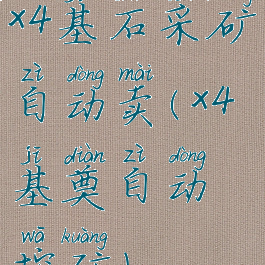 ×4基石采矿
zì dòng mài
自动卖(×4
jī diàn zì dòng
基奠自动
wā kuàng
挖矿)